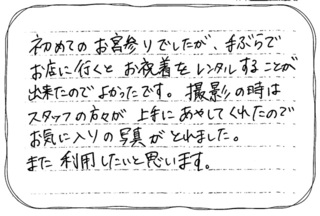 初めてのお宮参りでしたが、手ぶらで
お店に行くとお祝着をレンタルすることが
出来たのでよかったです。撮影の時は
スタッフの方々が上手にあやしてくれたので
お気に入りの写真がとれました。
また利用したいと思います。